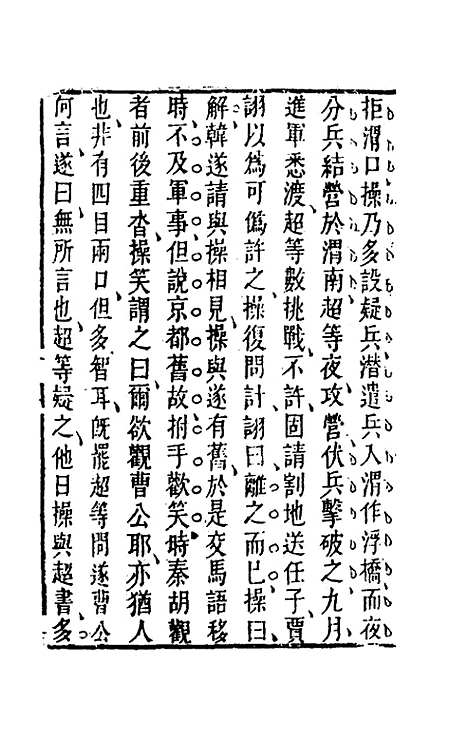 拒渭口操乃多設疑兵潛遣兵入渭作浮橋而夜
分兵結營於渭南超等夜攻營伏兵擊破之九月
進軍悉渡超等數挑戰不許固請割地送任子賈
詡以爲可僞許之操復問計詡曰離之而已操曰
解韓遂請與操相見操與遂有舊於是交馬語移
時不及軍事但說京都舊故拊手歡笑時秦胡觀
者前後重沓操笑謂之曰爾欲觀曹公耶亦猶人
也非有四目兩口但多智耳旣罷超等問遂曹公
何言遂曰無所言也超等疑之他日操與超書多